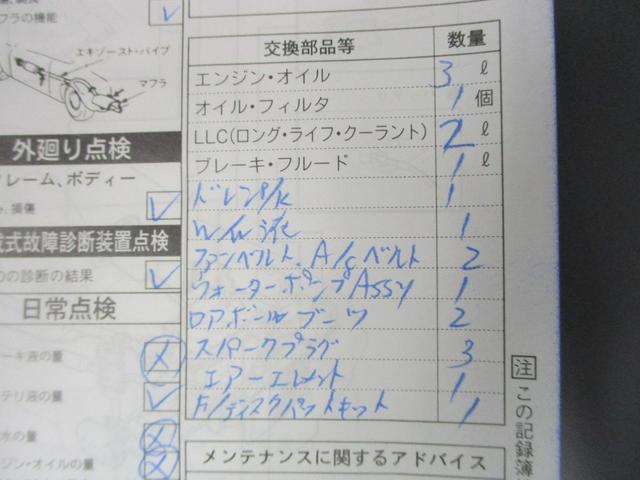 フラの機能
エキゾースト・パイプ
マフラ
外廻り点検
レーム、ボディー
、損傷
式故障診断装置点検
の診断の結果
日常点検
ーキ液の量
テリ液の量
水の量
ジン・オイルの量
交換部品等 数量
エンジン・オイル 3 ℓ
オイル・フィルタ 1 個
LLC(ロング・ライフ・クーラント) 2 ℓ
ブレーキ・フルード 1 ℓ
ドレンP/K 1
W/W液 1
ファンベルト、A/Cベルト 2
ウォーターポンプASSY 1
ロアボールブーツ 2
スパークプラグ 3
エアーエレメント 1
F/ディスクパットキット 1
メンテナンスに関するアドバイス
注 この記録簿